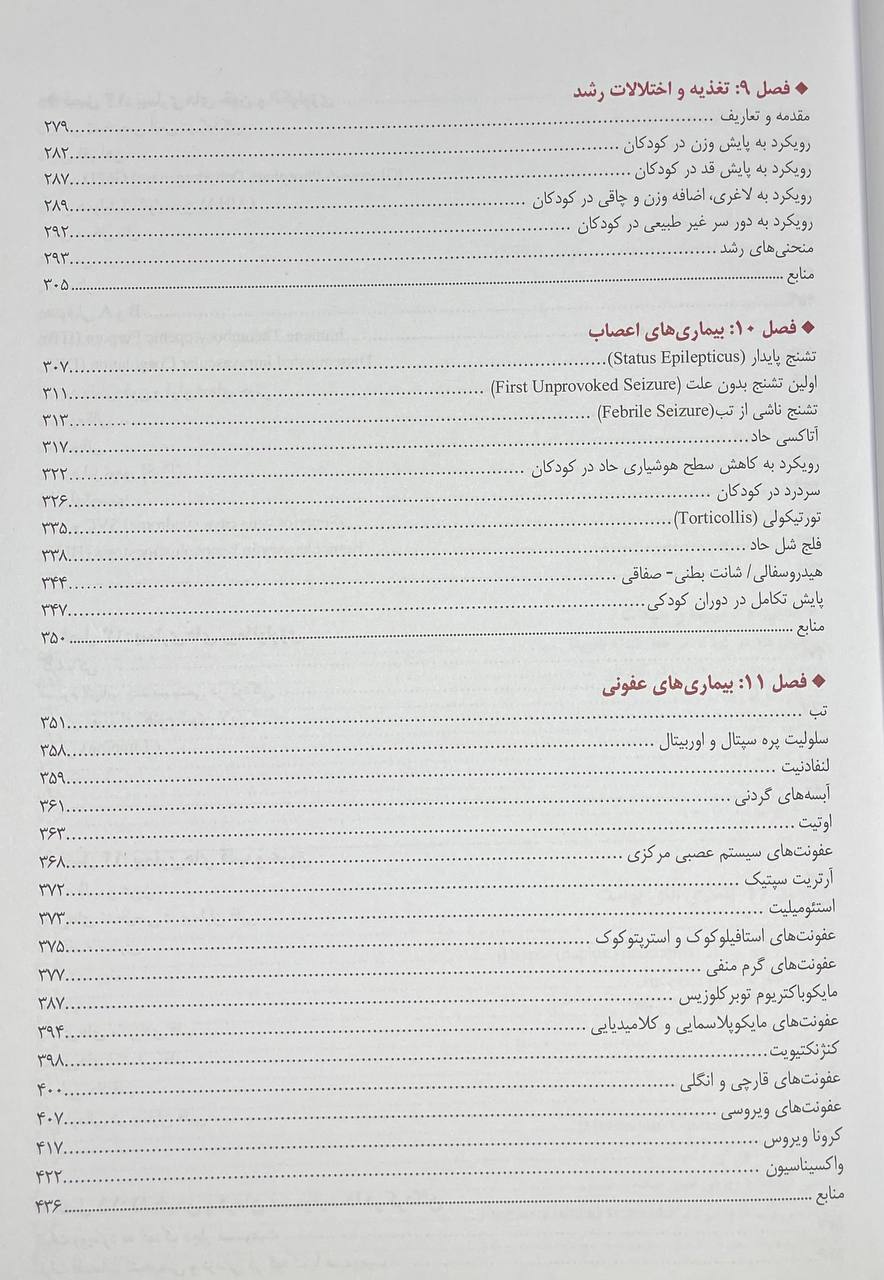 ◆ فصل ۹: تغذیه و اختلالات رشد
مقدمه و تعاریف ........ ۲۷۹
رویکرد به پایش وزن در کودکان ........ ۲۸۲
رویکرد به پایش قد در کودکان ........ ۲۸۷
رویکرد به لاغری، اضافه وزن و چاقی در کودکان ........ ۲۸۹
رویکرد به دور سر غیر طبیعی در کودکان ........ ۲۹۲
منحنی‌های رشد ........ ۲۹۳
منابع ........ ۳۰۵
◆ فصل ۱۰: بیماری‌های اعصاب
تشنج پایدار (Status Epilepticus) ........ ۳۰۷
اولین تشنج بدون علت (First Unprovoked Seizure) ........ ۳۱۱
تشنج ناشی از تب(Febrile Seizure) ........ ۳۱۳
آتاکسی حاد ........ ۳۱۷
رویکرد به کاهش سطح هوشیاری حاد در کودکان ........ ۳۲۲
سردرد در کودکان ........ ۳۲۶
تورتیکولی (Torticollis) ........ ۳۳۵
فلج شل حاد ........ ۳۳۸
هیدروسفالی/ شانت بطنی- صفاقی ........ ۳۴۴
پایش تکامل در دوران کودکی ........ ۳۴۷
منابع ........ ۳۵۰
◆ فصل ۱۱: بیماری‌های عفونی
تب ........ ۳۵۱
سلولیت پره سپتال و اوربیتال ........ ۳۵۸
لنفادنیت ........ ۳۵۹
آبسه‌های گردنی ........ ۳۶۱
اوتیت ........ ۳۶۳
عفونت‌های سیستم عصبی مرکزی ........ ۳۶۸
آرتریت سپتیک ........ ۳۷۲
استئومیلیت ........ ۳۷۳
عفونت‌های استافیلوکوک و استرپتوکوک ........ ۳۷۵
عفونت‌های گرم منفی ........ ۳۷۷
مایکوباکتریوم توبرکلوزیس ........ ۳۸۷
عفونت‌های مایکوپلاسمایی و کلامیدیایی ........ ۳۹۴
کنژنکتیویت ........ ۳۹۸
عفونت‌های قارچی و انگلی ........ ۴۰۰
عفونت‌های ویروسی ........ ۴۰۷
کرونا ویروس ........ ۴۱۷
واکسیناسیون ........ ۴۲۲
منابع ........ ۴۳۶